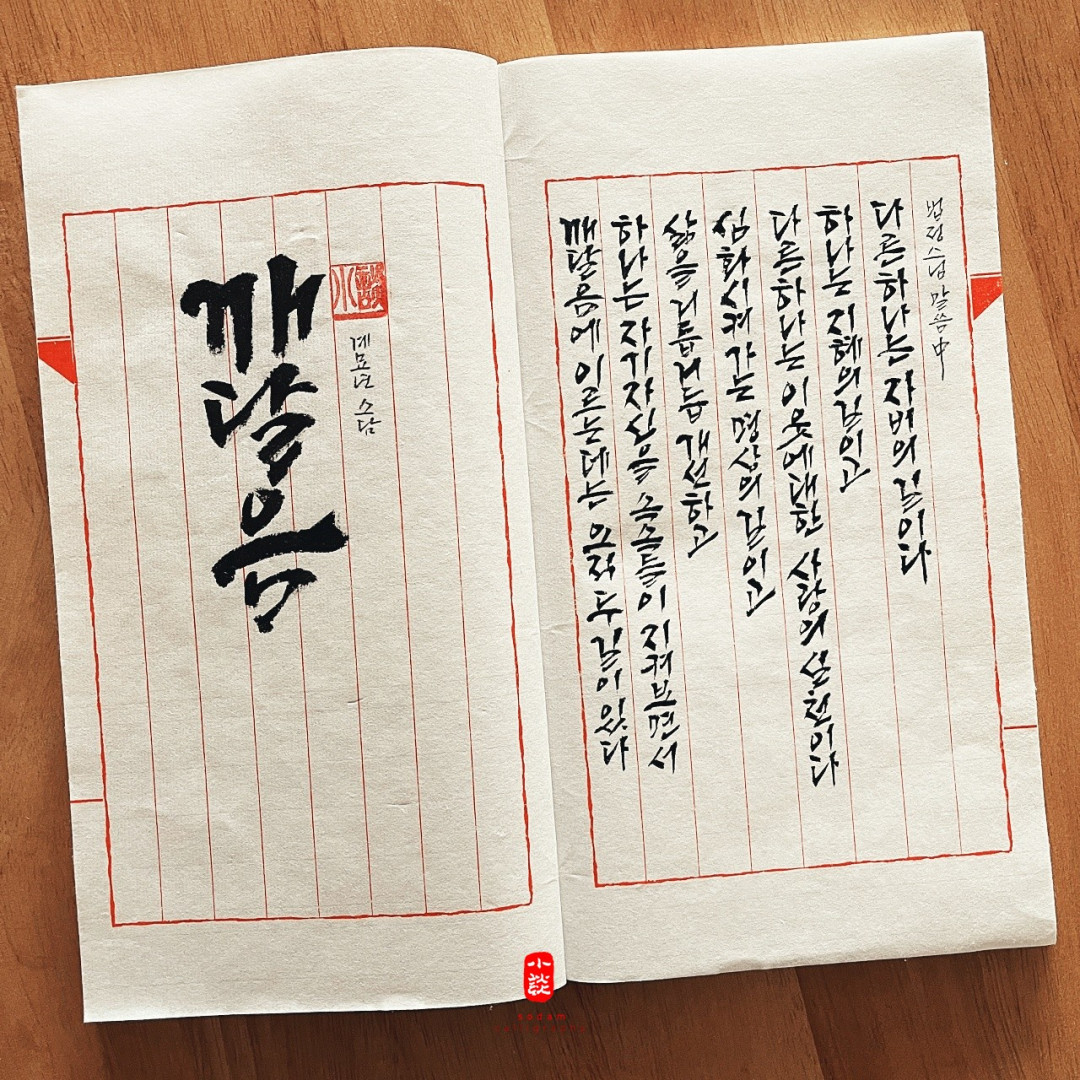 깨달음
계묘년 소담
깨달음에 이르는데는 오직 두 길이 있다
하나는 자기자신을 속속들이 지켜보면서
삶을 거듭거듭 개선하고
심화시켜 가는 명상의 길이고
다른하나는 이웃에대한 사랑의 실천이다
하나는 지혜의 길이고
다른하나는 자비의 길이다
법정스님 말씀 中
sodam